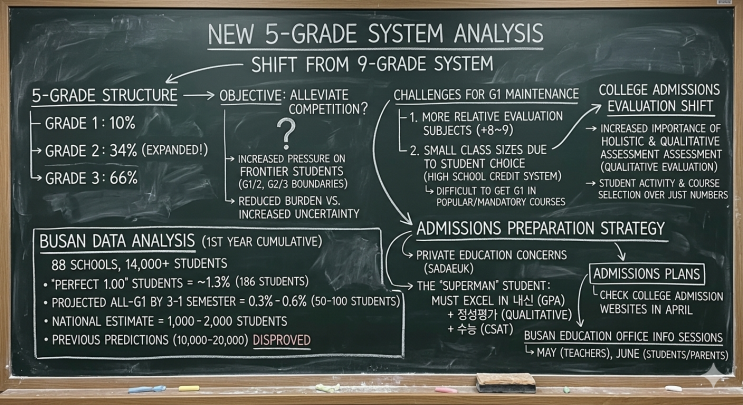 NEW 5-GRADE SYSTEM ANALYSIS
SHIFT FROM 9-GRADE SYSTEM
5-GRADE STRUCTURE
GRADE 1: 10%
GRADE 2: 34% (EXPANDED!)
GRADE 3: 66%
OBJECTIVE: ALLEVIATE
COMPETITION?
?
INCREASED PRESSURE ON
FRONTIER STUDENTS
(G1/2, G2/3 BOUNDARIES)
REDUCED BURDEN VS.
INCREASED UNCERTAINTY
CHALLENGES FOR G1 MAINTENANCE
1. MORE RELATIVE EVALUATION
SUBJECTS (+8~9)
2. SMALL CLASS SIZES DUE
TO STUDENT CHOICE
(HIGH SCHOOL CREDIT SYSTEM)
DIFFICULT TO GET G1 IN
POPULAR/MANDATORY COURSES
COLLEGE ADMISSIONS
EVALUATION SHIFT
INCREASED IMPORTANCE OF
HOLISTIC & QUALITATIVE
ASSESSMENT ASSESSMENT
(QUALITATIVE EVALUATION)
STUDENT ACTIVITY & COURSE
SELECTION OVER JUST NUMBERS
BUSAN DATA ANALYSIS (1ST YEAR CUMULATIVE)
88 SCHOOLS, 14,000+ STUDENTS
• "PERFECT 1.00" STUDENTS = ~1.3% (186 STUDENTS)
• PROJECTED ALL-G1 BY 3-1 SEMESTER = 0.3% - 0.6% (50-100 STUDENTS)
• NATIONAL ESTIMATE = 1,000 - 2,000 STUDENTS
• PREVIOUS PREDICTIONS (10,000-20,000) DISPROVED
ADMISSIONS PREPARATION STRATEGY
PRIVATE EDUCATION CONCERNS
(SADAEUK)
THE "SUPERMAN" STUDENT:
MUST EXCEL IN 내신 (GPA)
+ 정성평가 (QUALITATIVE)
+ 수능 (CSAT)
ADMISSIONS PLANS
CHECK COLLEGE ADMISSION
WEBSITES IN APRIL
BUSAN EDUCATION OFFICE INFO SESSIONS
MAY (TEACHERS), JUNE (STUDENTS/PARENTS)